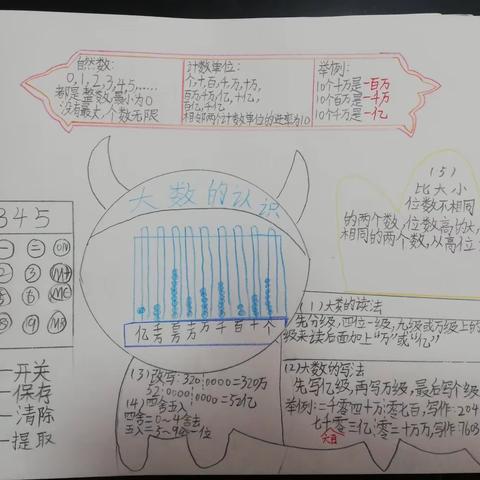 自然数:
0,1,2,3,4,5,......
都是整数,最小为0
没有最大,个数无限
计数单位:
个,十,百,千,万,十万,
百万,千万,亿,十亿,
百亿,千亿
相邻两个计数单位的进率为10
举例:
10个十万是一百万
10个百万是一千万
10个千万是一亿
大数的认识
(5)
比大小
位数不相同
的两个数,位数高的大,
相同的两个数,从高位
345
一 二 ON
2 3 M+
5 6
8 9
一开关
一保存
一清除
一提取
亿 千万 百万 十万 万 千 百 十 个
(1)大数的读法
先分级,四位一级,九级或万级上的
级来读后面加上“万”或“亿”
(2)大数的写法
先写亿级,再写万级,最后写个级
举例:二千零四十万零七百,写作:204
七千零三亿零二十万万,写作:7603
六百
(3)改写:320|0000=320万
32|0000|0000=32亿
(4)四舍五入
四舍=0~4舍去
五入=5~9进一位